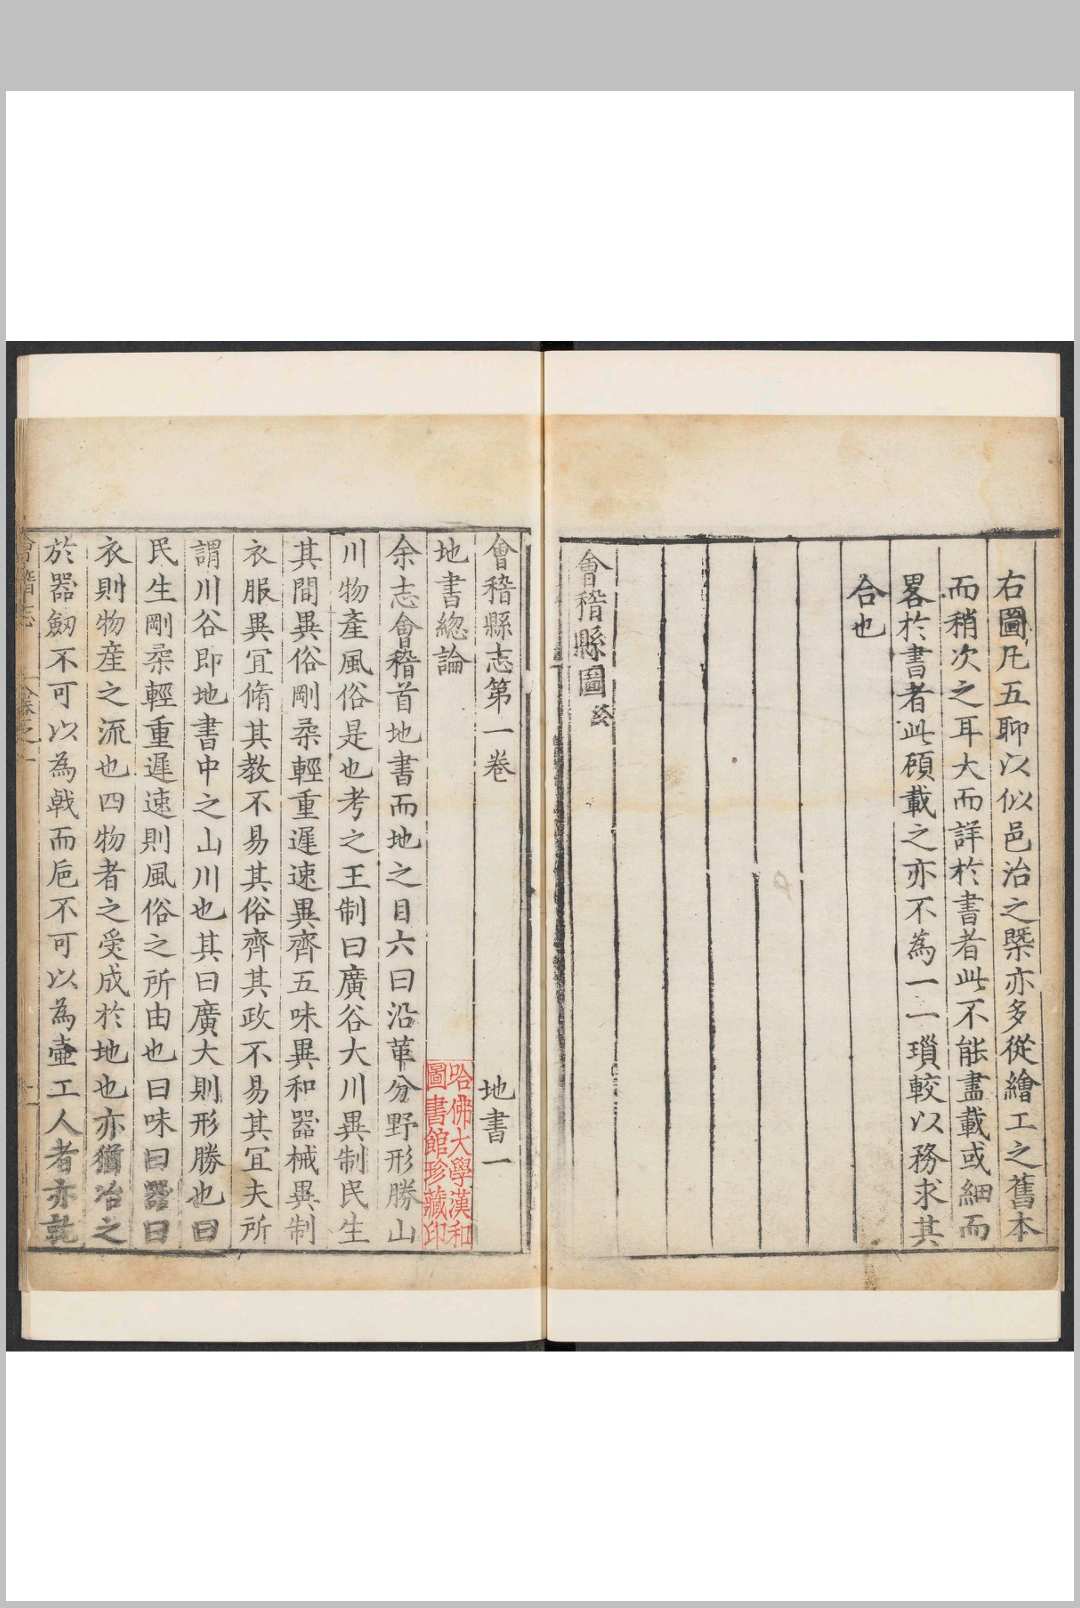 右圖凡五聊以似邑治之槩亦多從繪工之舊本
而稍次之耳大而詳於書者此不能盡載或細而
畧於書者此頋載之亦不為一一瑣較以務求其
合也
會稽縣圖終
會稽縣志第一卷
地書一
地書總論
余志會稽首地書而地之目六曰沿革分野形勝山
川物產風俗是也考之王制曰廣谷大川異制民生
其間異俗剛柔輕重遲速異齊五味異和器械異制
衣服異冝脩其教不易其俗齊其政不易其冝夫所
謂川谷即地書中之山川也其曰廣大則形勝也曰
民生剛柔輕重遲速則風俗之所由也曰味曰器曰
衣則物産之流也四物者之受成於地也亦猶冶之
於器劒不可以為戟而巵不可以為壷工人者亦
哈佛大學漢和
圖書館珍藏印